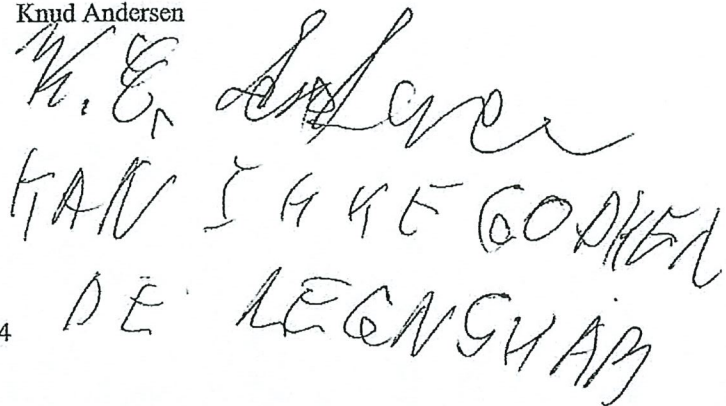 Knud Andersen
K. E. Andersen
KAN IKKE GODKEN
DE REGNSKAB
4